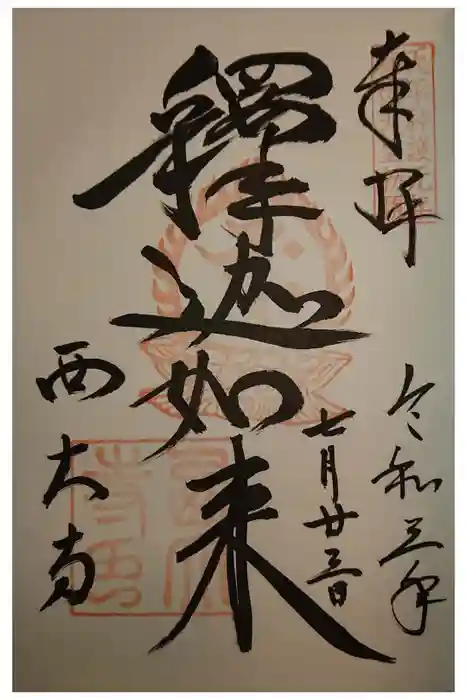 奉拝
令和三年
七月廿三日
釋迦如来
西大寺